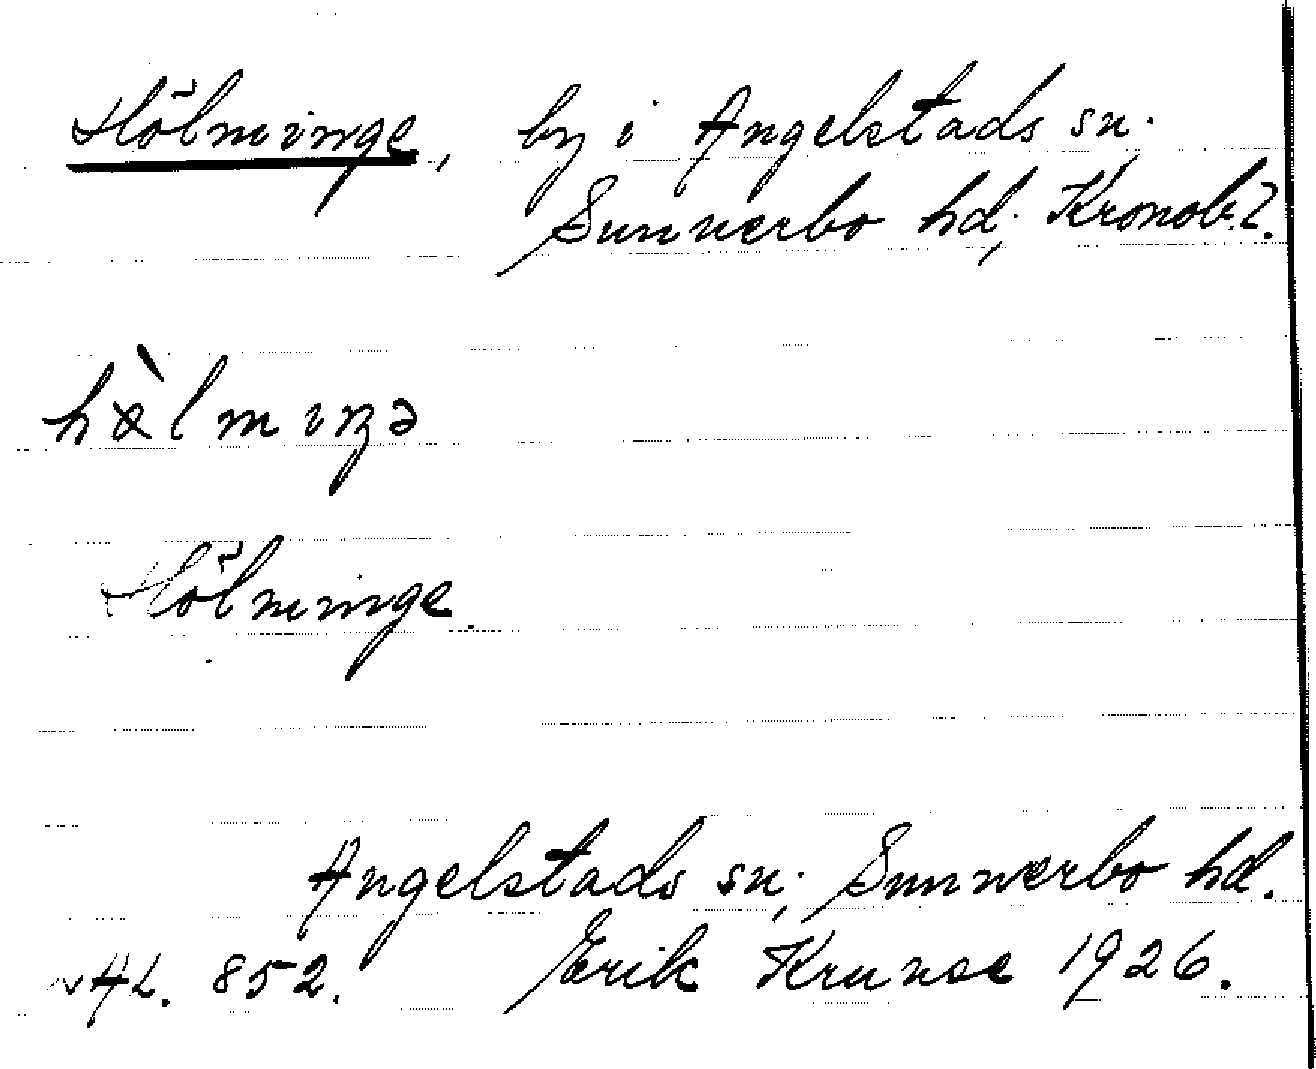 Hölminge, by i Angelstads sn.
Sunnerbo hd, Kronob. l.
Hölminge
Angelstads sn., Sunnerbo hd.
AL. 852. Erik Kruuse 1926.